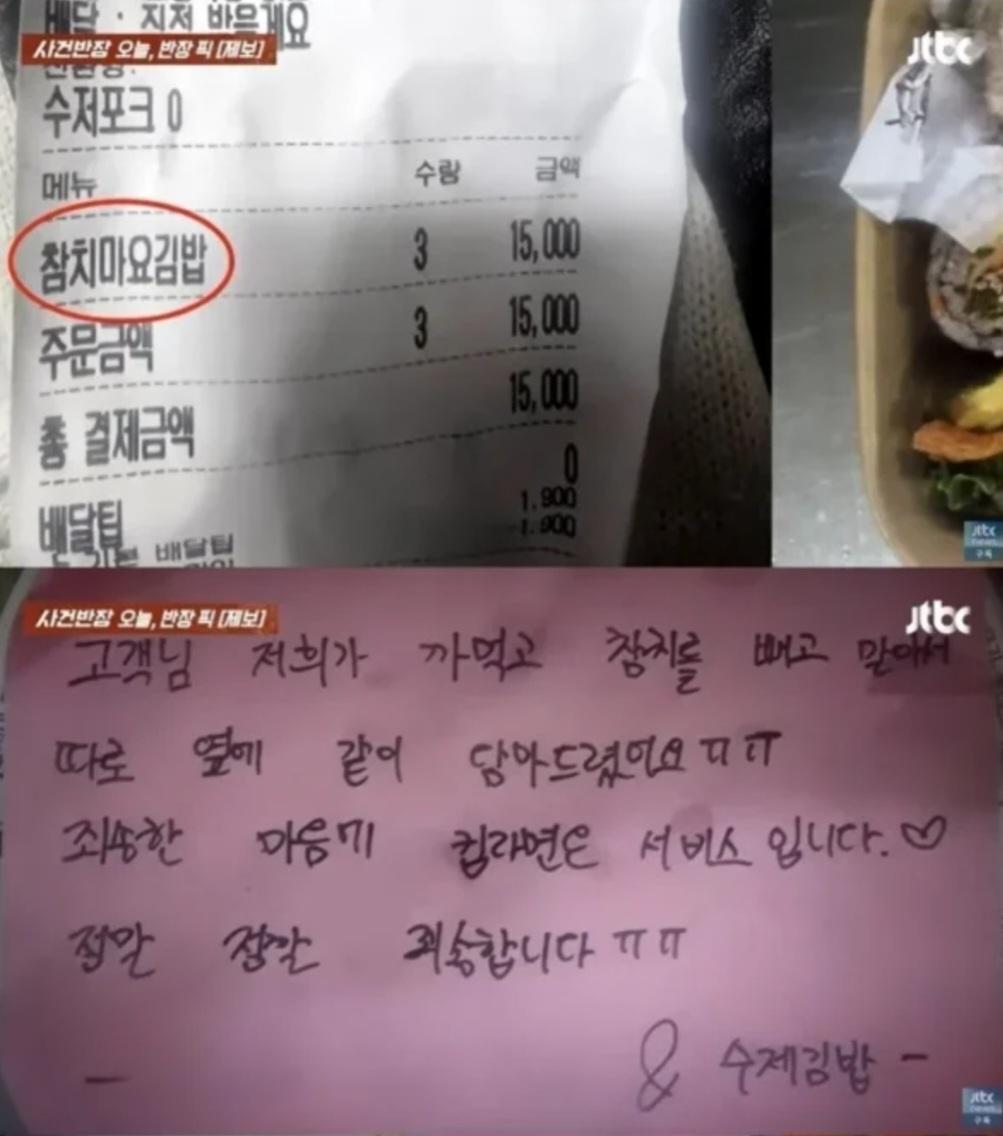 배달 : 직접 받을게요
사건반장 오늘, 반장 픽 [제보]
jtbc
수저포크 0
메뉴 수량 금액
참치마요김밥 3 15,000
주문금액 3 15,000
총 결제금액 15,000
배달팁 0
배달팁 1,900
-1,900
jtbc
news
구독
사건반장 오늘, 반장 픽 [제보]
jtbc
고객님 저희가 까먹고 참치를 빼고 말아서
따로 옆에 같이 담아드렸어요 ㅠㅠ
죄송한 마음에 컵라면은 서비스 입니다.♡
정말 정말 죄송합니다 ㅠㅠ
- & 수제김밥 -
jtbc
news
구독